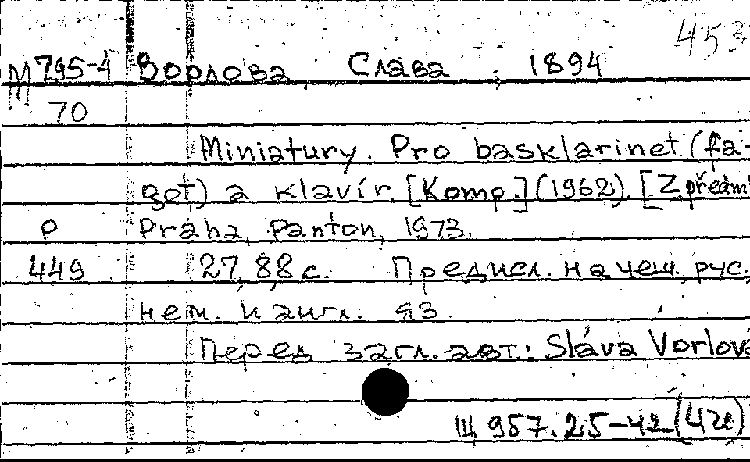 453
М 795-4 Ворлова, Слава, 1894
70
Miniatury. Pro basklarinet (fa-
got) a klavír. [Komp.] (1962). [Z předm
Р Praha, Panton, 1973.
449 27, 88 с. Предисл. на чеш. рус.
нем. и англ. яз.
Перед загл. авт.: Sláva Vorlova
Щ 957.25-42 (4Че)